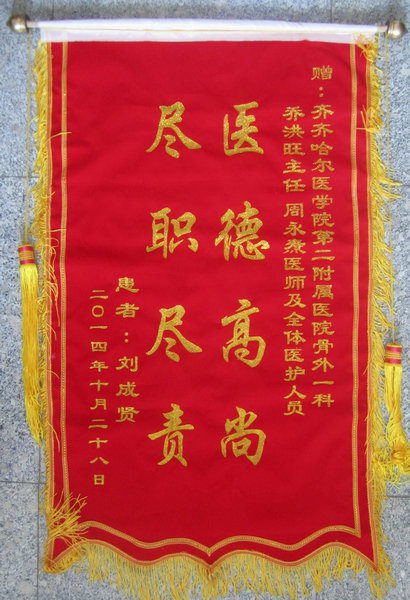 赠：齐齐哈尔医学院第二附属医院骨外一科
乔洪旺主任 周永焘医师及全体医护人员
医德高尚
尽职尽责
患者：刘成贤
二〇一四年十月二十八日